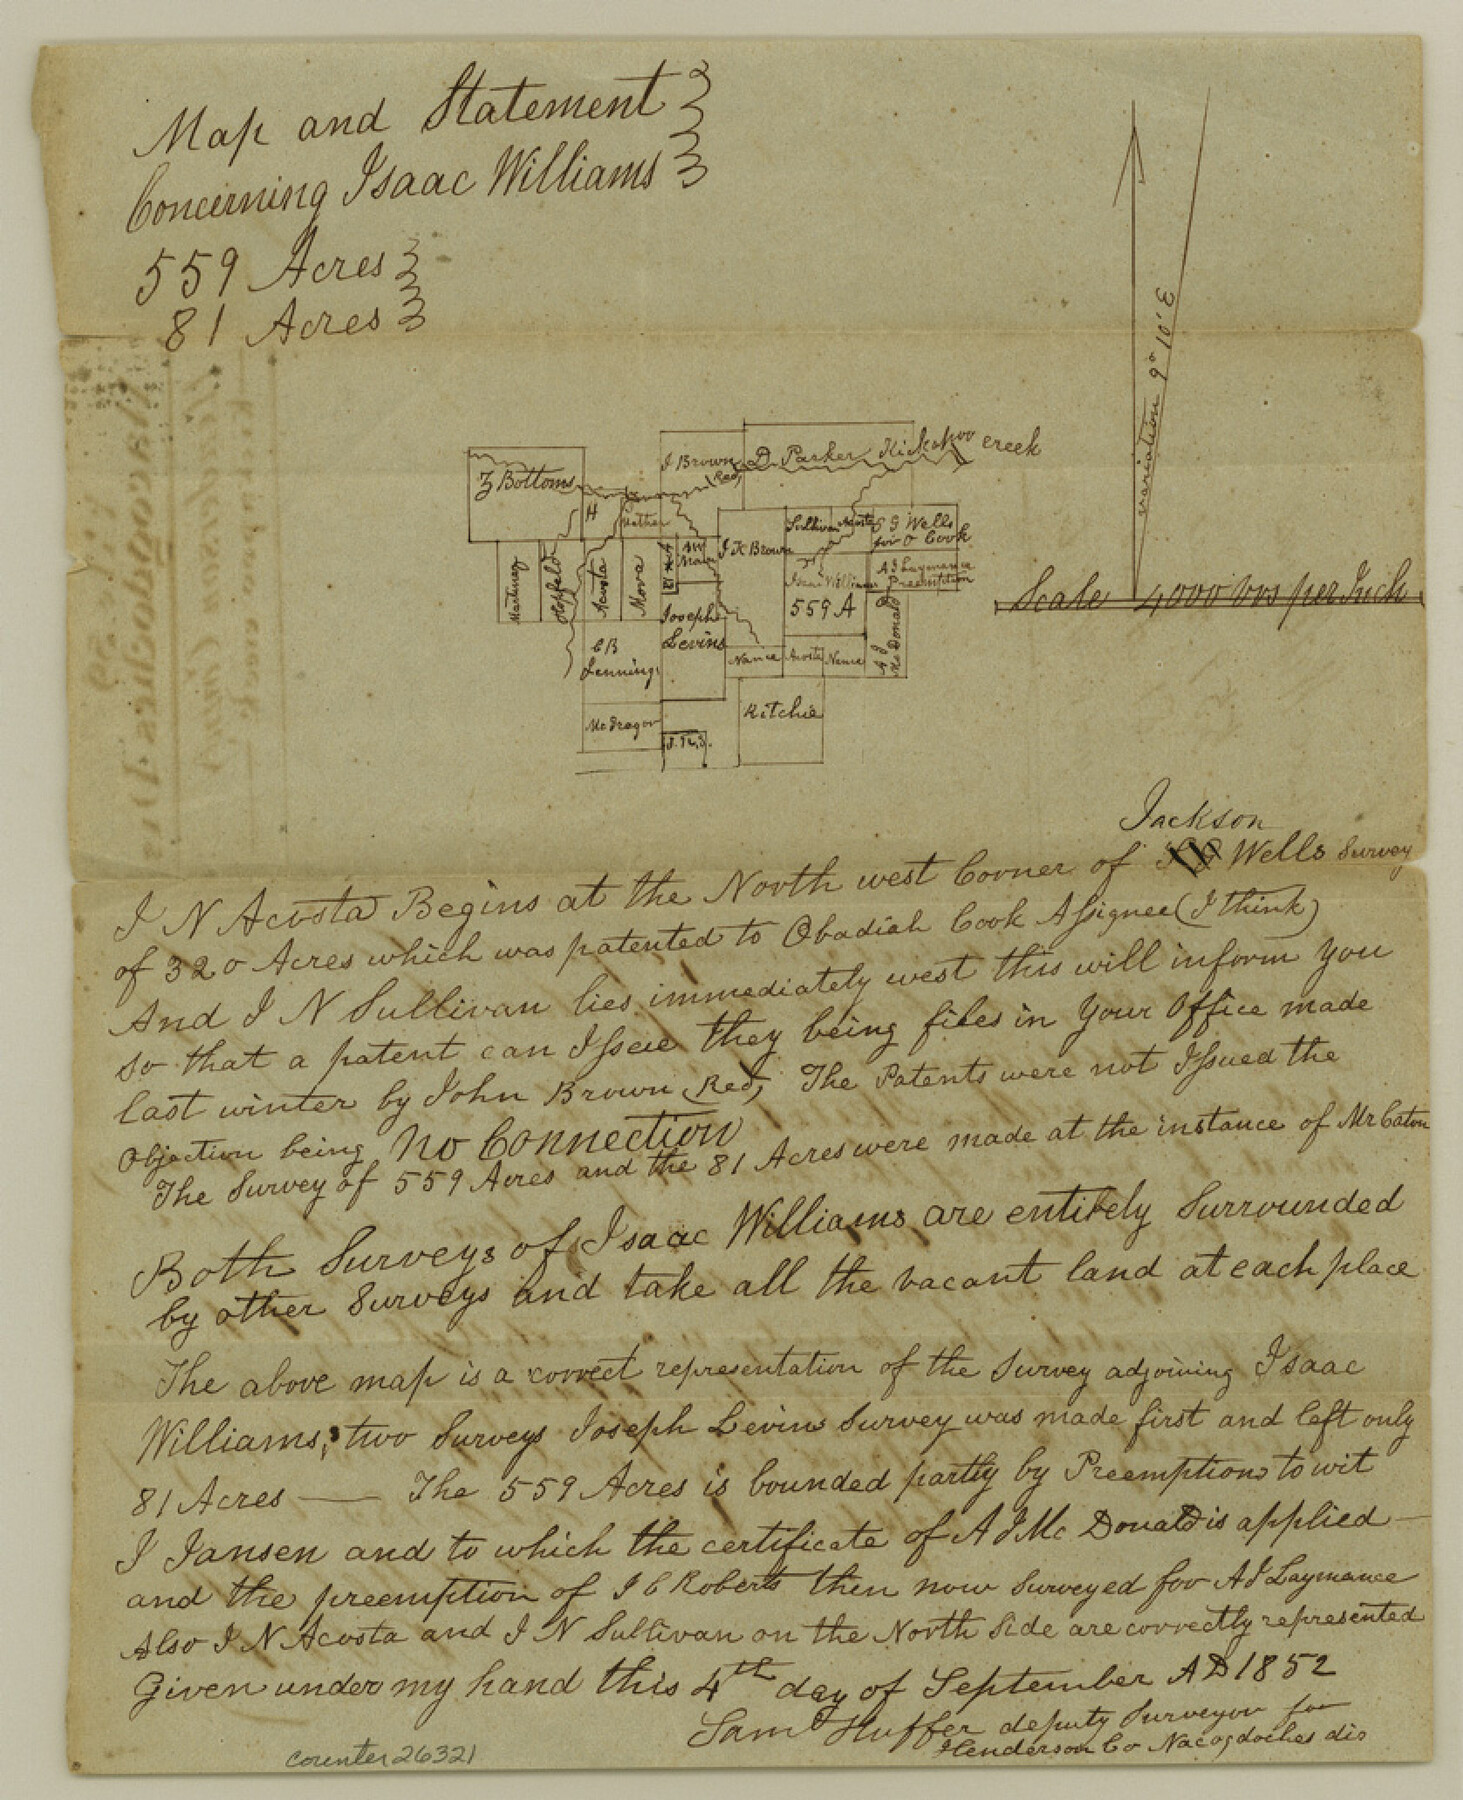 Map and Statement
Concerning Isaac Williams
559 Acres
81 Acres
variation 9° 10' E
Scale 4000 vrs per Inch
Z Bottoms
J Brown
Red,
D Parker
Kickapoo creek
H
Sullivan
Acosta
S J Wells
for O Cook
J K Brown
A J Laymance
Preemption
Isaac Williams
559 A
Martinez
Hopfeld
Acosta
Mora
Joseph
Levins
C B
Jennings
Nance
Acosta
Nance
A J
McDonald
McGregor
Ritchie
Jackson
J N Acosta Begins at the North west Corner of Wells Survey
of 320 Acres which was patented to Obadiah Cook Assignee (I think)
And J N Sullivan lies immediately west this will inform you
so that a patent can Issue they being files in Your Office made
last winter by John Brown Red, The Patents were not Issued the
Objection being No Connection
The Survey of 559 Acres and the 81 Acres were made at the instance of Mr Eaton
Both Surveys of Isaac Williams are entirely Surrounded
by other Surveys and take all the vacant land at each place
The above map is a correct representation of the Survey adjoining Isaac
Williams, two Surveys Joseph Levins Survey was made first and left only
81 Acres — The 559 Acres is bounded partly by Preemptions to wit
J Jansen and to which the certificate of A J McDonald is applied —
and the preemption of J C Roberts then now Surveyed for A J Laymance
Also J N Acosta and J N Sullivan on the North Side are correctly represented
Given under my hand this 4th day of September AD 1852
Saml Huffer deputy Surveyor for
Henderson Co Nacogdoches dis
counter 26321